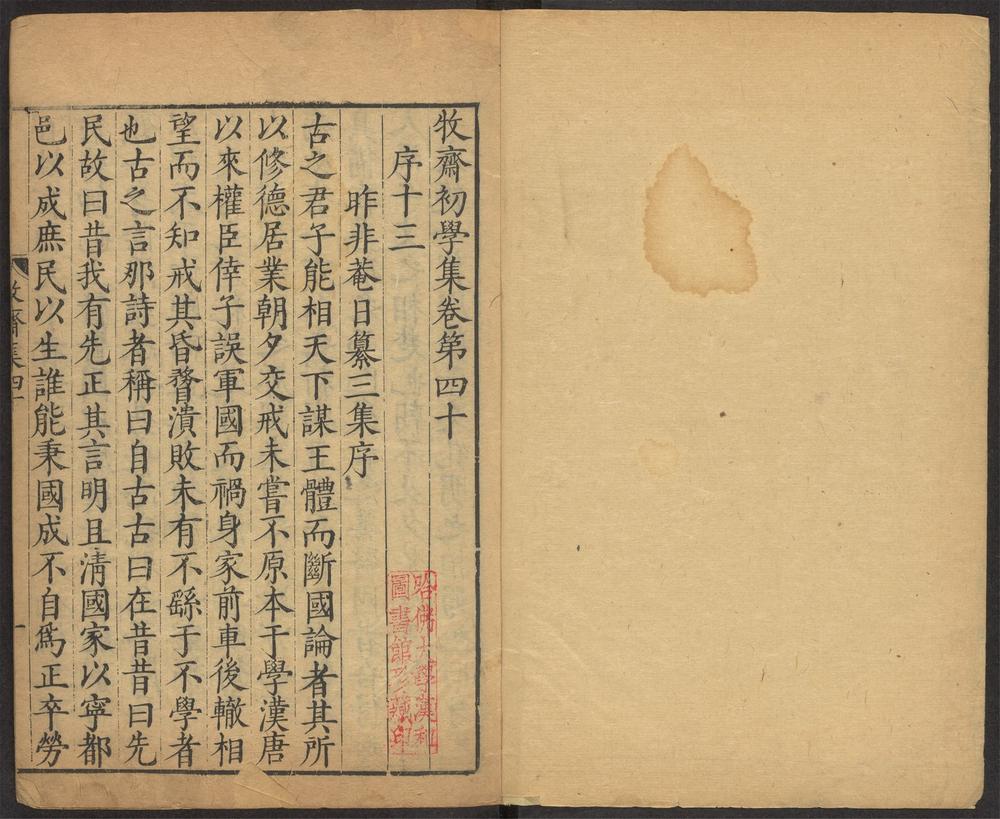 牧齋初學集卷第四十
序十三
昨非菴日纂三集序
古之君子能相天下謀王體而斷國論者其所
以修德居業朝夕交戒未嘗不原本于學漢唐
以來權臣倖子誤軍國而禍身家前車後轍相
望而不知戒其昏瞀潰敗未有不繇于不學者
也古之言那詩者稱曰自古古曰在昔昔曰先
民故曰昔我有先正其言明且淸國家以寧都
邑以成庶民以生誰能秉國成不自爲正卒勞
牧齋集四十
一
哈佛大學漢和
圖書館珍藏印